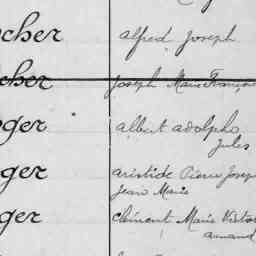 cher alfred Joseph
cher Joseph Marie François
ger albert adolphe
Jules
ger aristide Pierre Joseph
Jean Marie
ger clément Marie Victor
armand